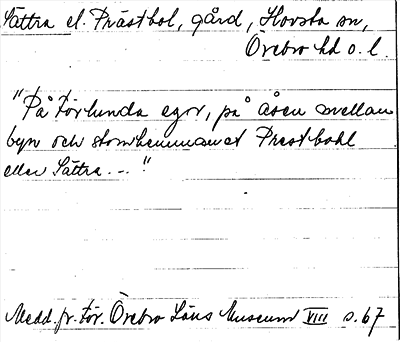 Sättra el. Prästbol, gård, Hovsta sn,
Örebro hd o. l.
"På Törlunda egor, på åsen mellan
byn och stomhemmanet Prestbohl
eller Sättra..."
Medd. fr. För. Örebro Läns Museum VIII s. 67